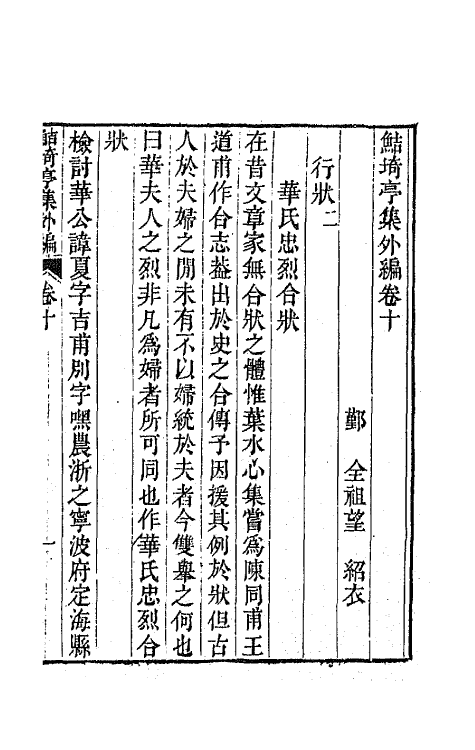 鮚埼亭集外編卷十
鄞　全祖望　紹衣
行狀二
華氏忠烈合狀
在昔文章家無合狀之體惟葉水心集嘗爲陳同甫王
道甫作合志葢出於史之合傳予因援其例於狀但古
人於夫婦之閒未有不以婦統於夫者今雙舉之何也
曰華夫人之烈非凡爲婦者所可同也作華氏忠烈合
狀
檢討華公諱夏字吉甫別字嘿農浙之寧波府定海縣
鮚埼亭集外編　卷十　一